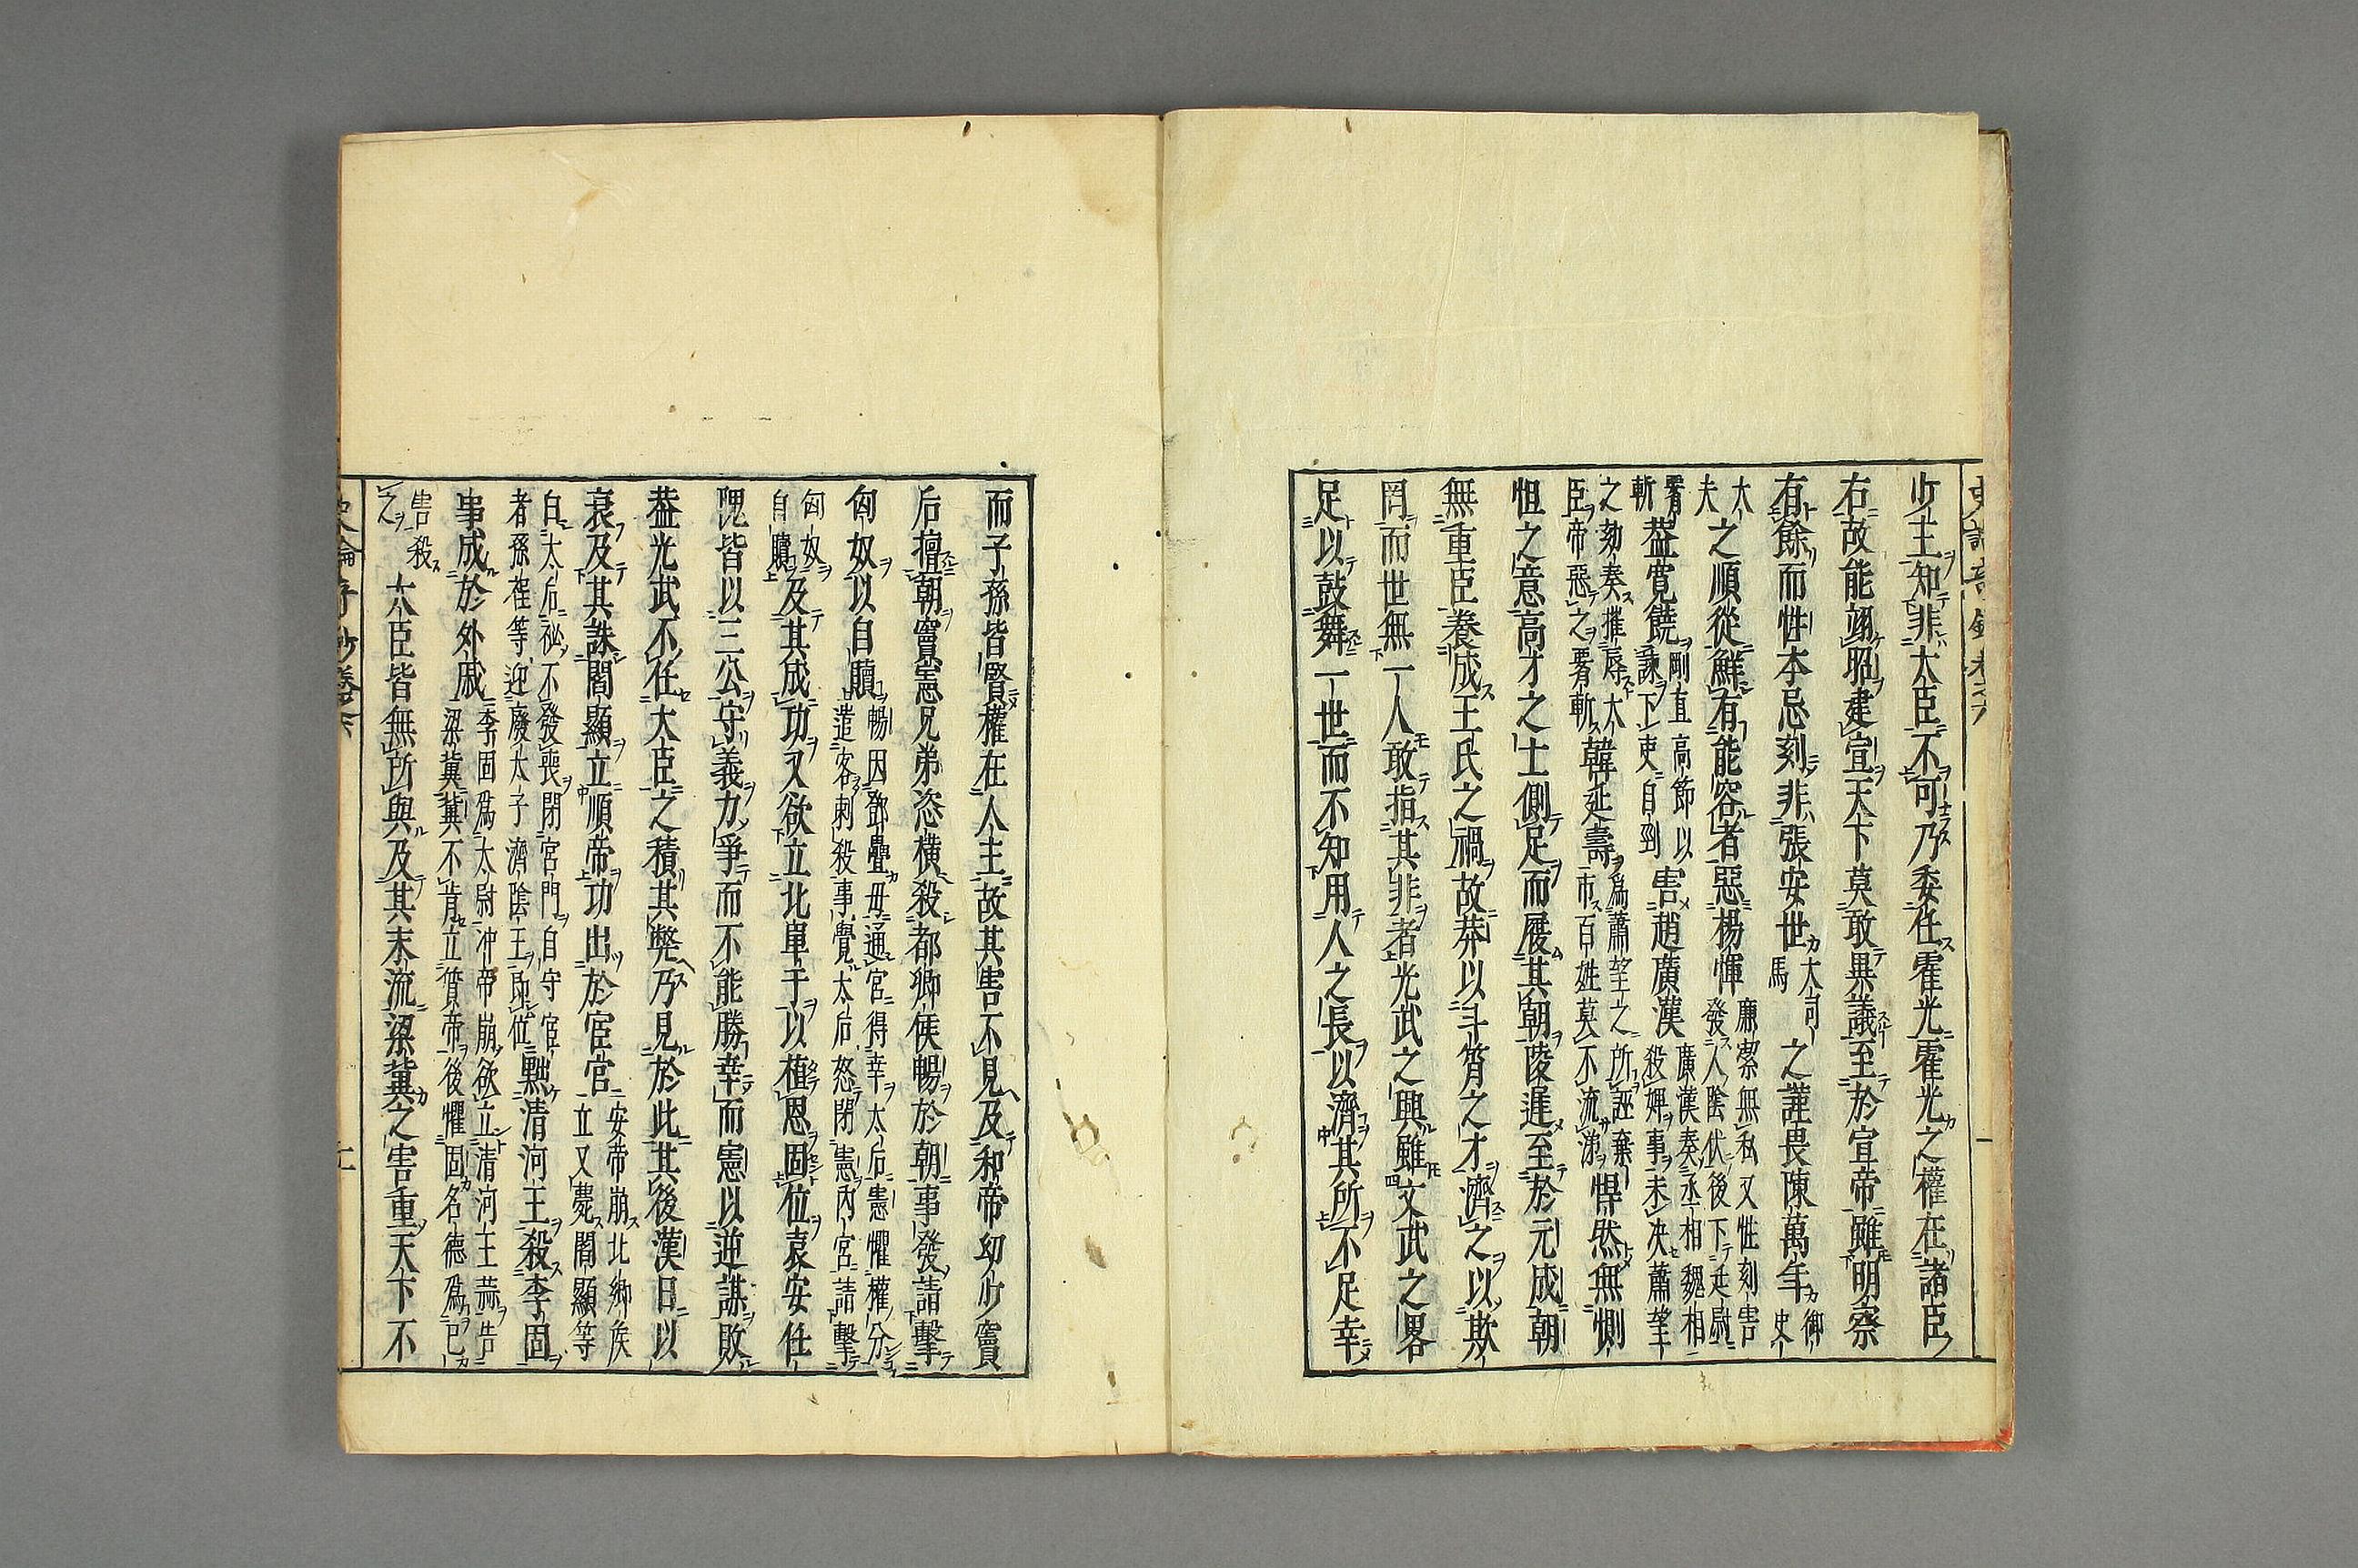 少主知非大臣不可乃委任霍光霍光之權在諸臣
右故能翊昭建宣天下莫敢異議至於宣帝雖明察
有餘而性本忌刻非張安世大司馬之謹畏陳萬年御史
大夫之順從鮮有能容者惡楊惲廉潔無私又性刻害發人陰伏後下廷尉
腰斬葢寬饒剛直高節以諫下吏自剄害趙廣漢廣漢奏丞相魏相殺婢事未决蕭望
之劾奏摧辱大臣帝惡之腰斬韓延壽爲蕭望之所誣棄市百姓莫不流涕悍然無惻
怛之意高才之士側足而履其朝陵遲至於元成朝
無重臣養成王氏之禍故莽以斗筲之才濟之以欺
罔而世無一人敢指其非者光武之興雖文武之畧
足以鼓舞一世而不知用人之長以濟其所不足幸
而子孫皆賢權在人主故其害不見及和帝幼少竇
后擅朝竇憲兄弟恣橫殺都鄉侯暢於朝事發請擊
匈奴以自贖暢因鄧疊母通宮得幸太后憲懼權分遣客刺殺事覺太后怒閉憲內宮請擊
匈奴自贖及其成功又欲立北單于以植恩固位袁安任
隗皆以三公守義力爭而不能勝幸而憲以逆謀敗
葢光武不任大臣之積其弊乃見於此其後漢日以
衰及其誅閻顯立順帝功出於宦官安帝崩北鄉侯立又薨閻顯等
白太后祕不發喪閉宮門自守宦者孫程等迎廢太子濟陰王即位黜清河王殺李固
事成於外戚李固爲太尉冲帝崩欲立清河王蒜告梁冀冀不肯立質帝後懼固名德爲己
害殺之大臣皆無所與及其末流梁冀之害重天下不